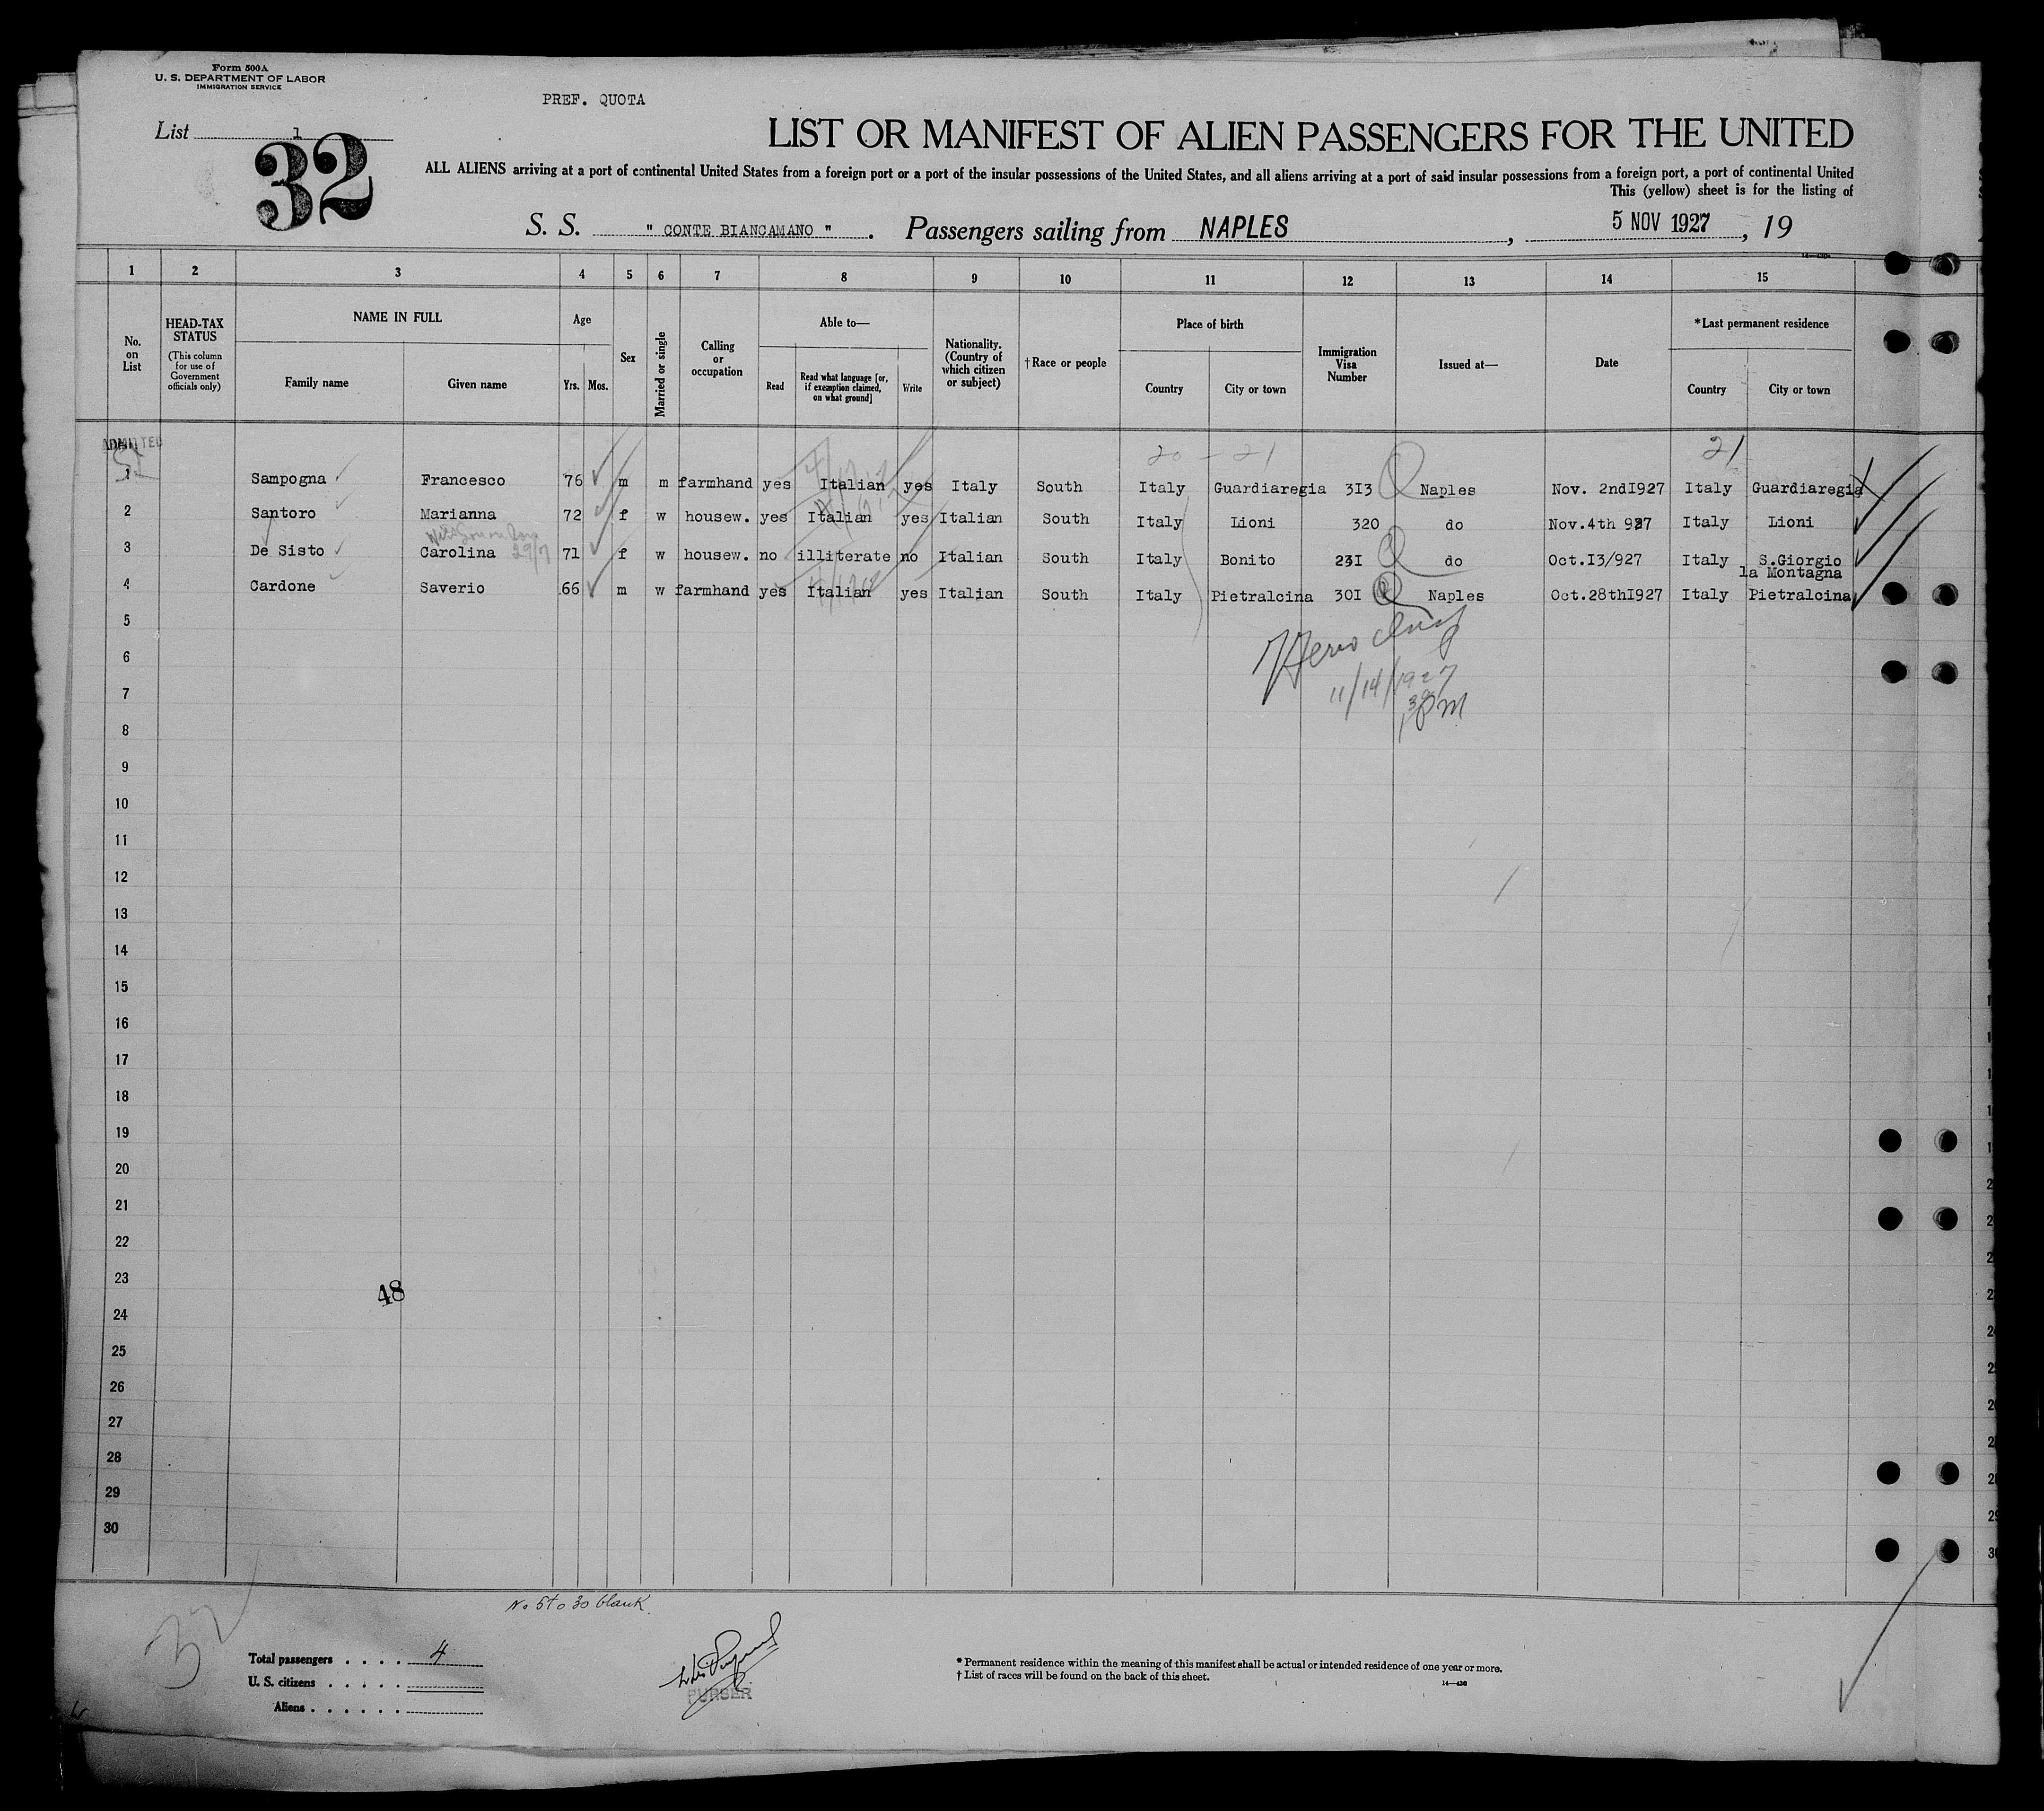 Form 500A
U. S. DEPARTMENT OF LABOR
IMMIGRATION SERVICE
PREF. QUOTA
List 1
32
LIST OR MANIFEST OF ALIEN PASSENGERS FOR THE UNITED
ALL ALIENS arriving at a port of continental United States from a foreign port or a port of the insular possessions of the United States, and all aliens arriving at a port of said insular possessions from a foreign port, a port of continental United
This (yellow) sheet is for the listing of
S. S. " CONTE BIANCAMANO " . Passengers sailing from NAPLES , 5 NOV 1927 , 19
1 2 3 4 5 6 7 8 9 10 11 12 13 14 15
No. on List
HEAD-TAX STATUS (This column for use of Government officials only)
NAME IN FULL
Family name Given name
Age
Yrs. Mos.
Sex
Married or single
Calling or occupation
Able to—
Read Read what language [or, if exemption claimed, on what ground] Write
Nationality. (Country of which citizen or subject)
†Race or people
Place of birth
Country City or town
Immigration Visa Number
Issued at—
Date
*Last permanent residence
Country City or town
ADMITTED
20 - 21 21
1 Sampogna Francesco 76 m m farmhand yes Italian yes Italy South Italy Guardiaregia 3I3 Naples Nov. 2ndI927 Italy Guardiaregia
2 Santoro Marianna 72 f w housew. yes Italian yes Italian South Italy Lioni 320 do Nov.4th 927 Italy Lioni
3 De Sisto Carolina 71 f w housew. no illiterate no Italian South Italy Bonito 23I do Oct.I3/927 Italy S.Giorgio
la Montagna
4 Cardone Saverio 66 m w farmhand yes Italian yes Italian South Italy Pietralcina 30I Naples Oct.28thI927 Italy Pietralcina
5
6
7 11/14/1927
8 PM
9
10
11
12
13
14
15
16
17
18
19
20
21
22
23
48
24
25
26
27
28
29
30
No 5 to 30 blank
32
Total passengers . . . . 4
U. S. citizens . . . . .
Aliens . . . . . .
PURSER
* Permanent residence within the meaning of this manifest shall be actual or intended residence of one year or more.
† List of races will be found on the back of this sheet.
14—430